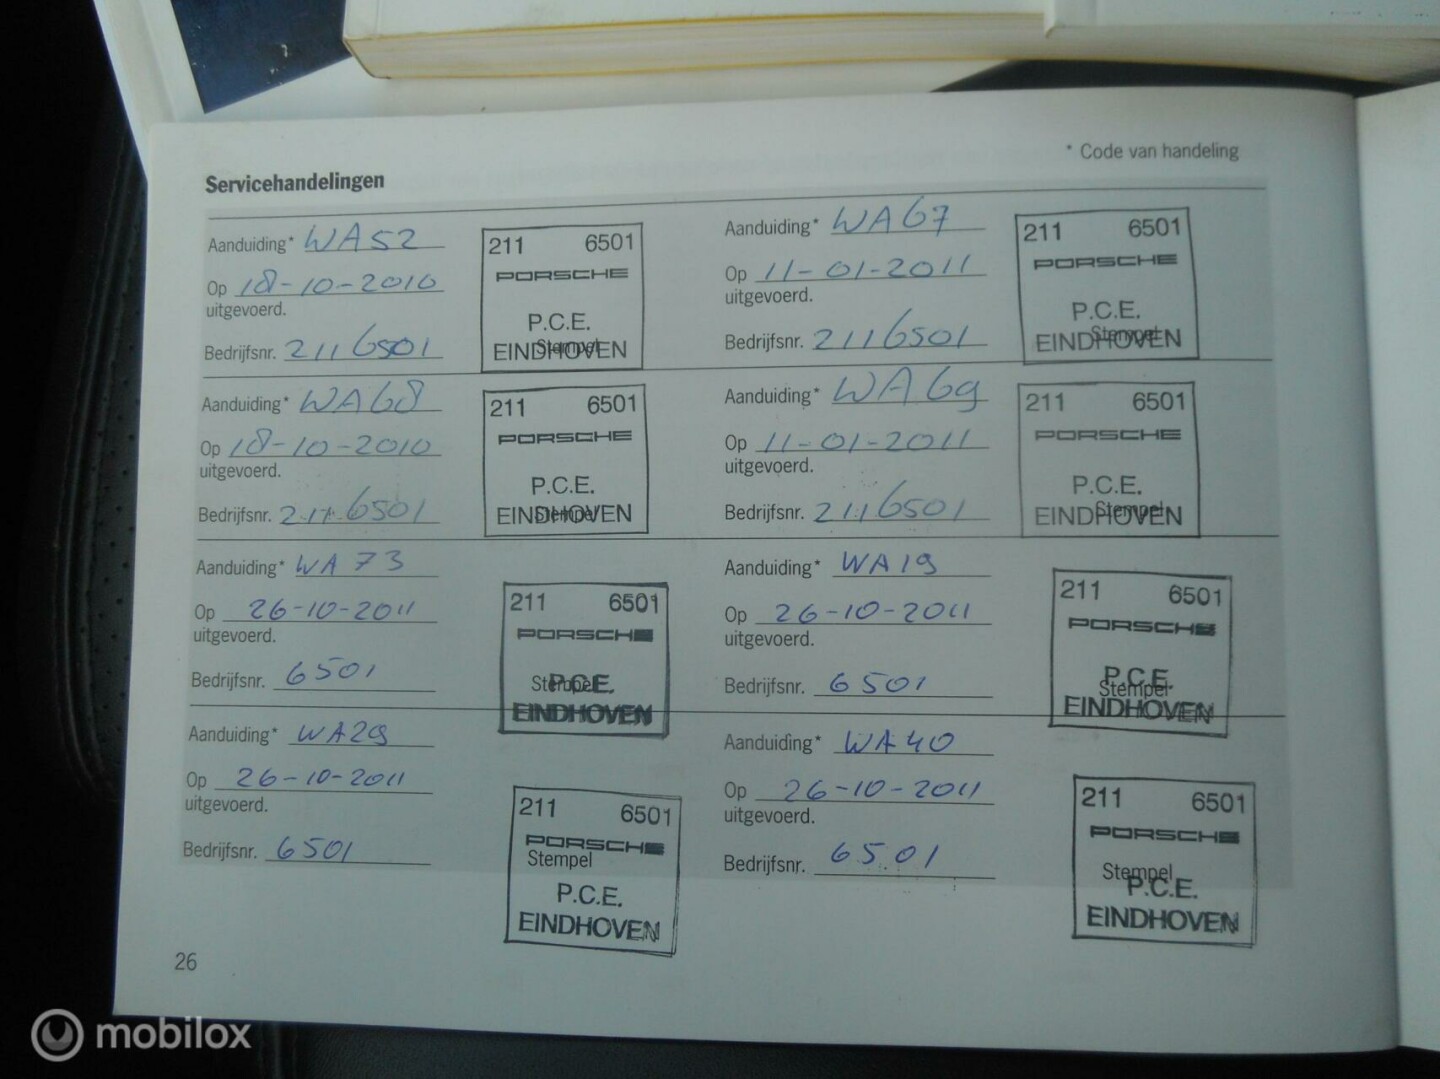 * Code van handeling
Servicehandelingen
Aanduiding* WA52
Op 18-10-2010
uitgevoerd.
Bedrijfsnr. 2116501
211 6501
PORSCHE
P.C.E.
Stempel
EINDHOVEN
Aanduiding* WA67
Op 11-01-2011
uitgevoerd.
Bedrijfsnr. 2116501
211 6501
PORSCHE
P.C.E.
Stempel
EINDHOVEN
Aanduiding* WA68
Op 18-10-2010
uitgevoerd.
Bedrijfsnr. 2116501
211 6501
PORSCHE
P.C.E.
Stempel
EINDHOVEN
Aanduiding* WA69
Op 11-01-2011
uitgevoerd.
Bedrijfsnr. 2116501
211 6501
PORSCHE
P.C.E.
Stempel
EINDHOVEN
Aanduiding* WA73
Op 26-10-2011
uitgevoerd.
Bedrijfsnr. 6501
211 6501
PORSCHE
Stempel
P.C.E.
EINDHOVEN
Aanduiding* WA19
Op 26-10-2011
uitgevoerd.
Bedrijfsnr. 6501
211 6501
PORSCHE
P.C.E.
Stempel
EINDHOVEN
Aanduiding* WA29
Op 26-10-2011
uitgevoerd.
Bedrijfsnr. 6501
211 6501
PORSCHE
Stempel
P.C.E.
EINDHOVEN
Aanduiding* WA40
Op 26-10-2011
uitgevoerd.
Bedrijfsnr. 6501
211 6501
PORSCHE
Stempel
P.C.E.
EINDHOVEN
26
mobilox